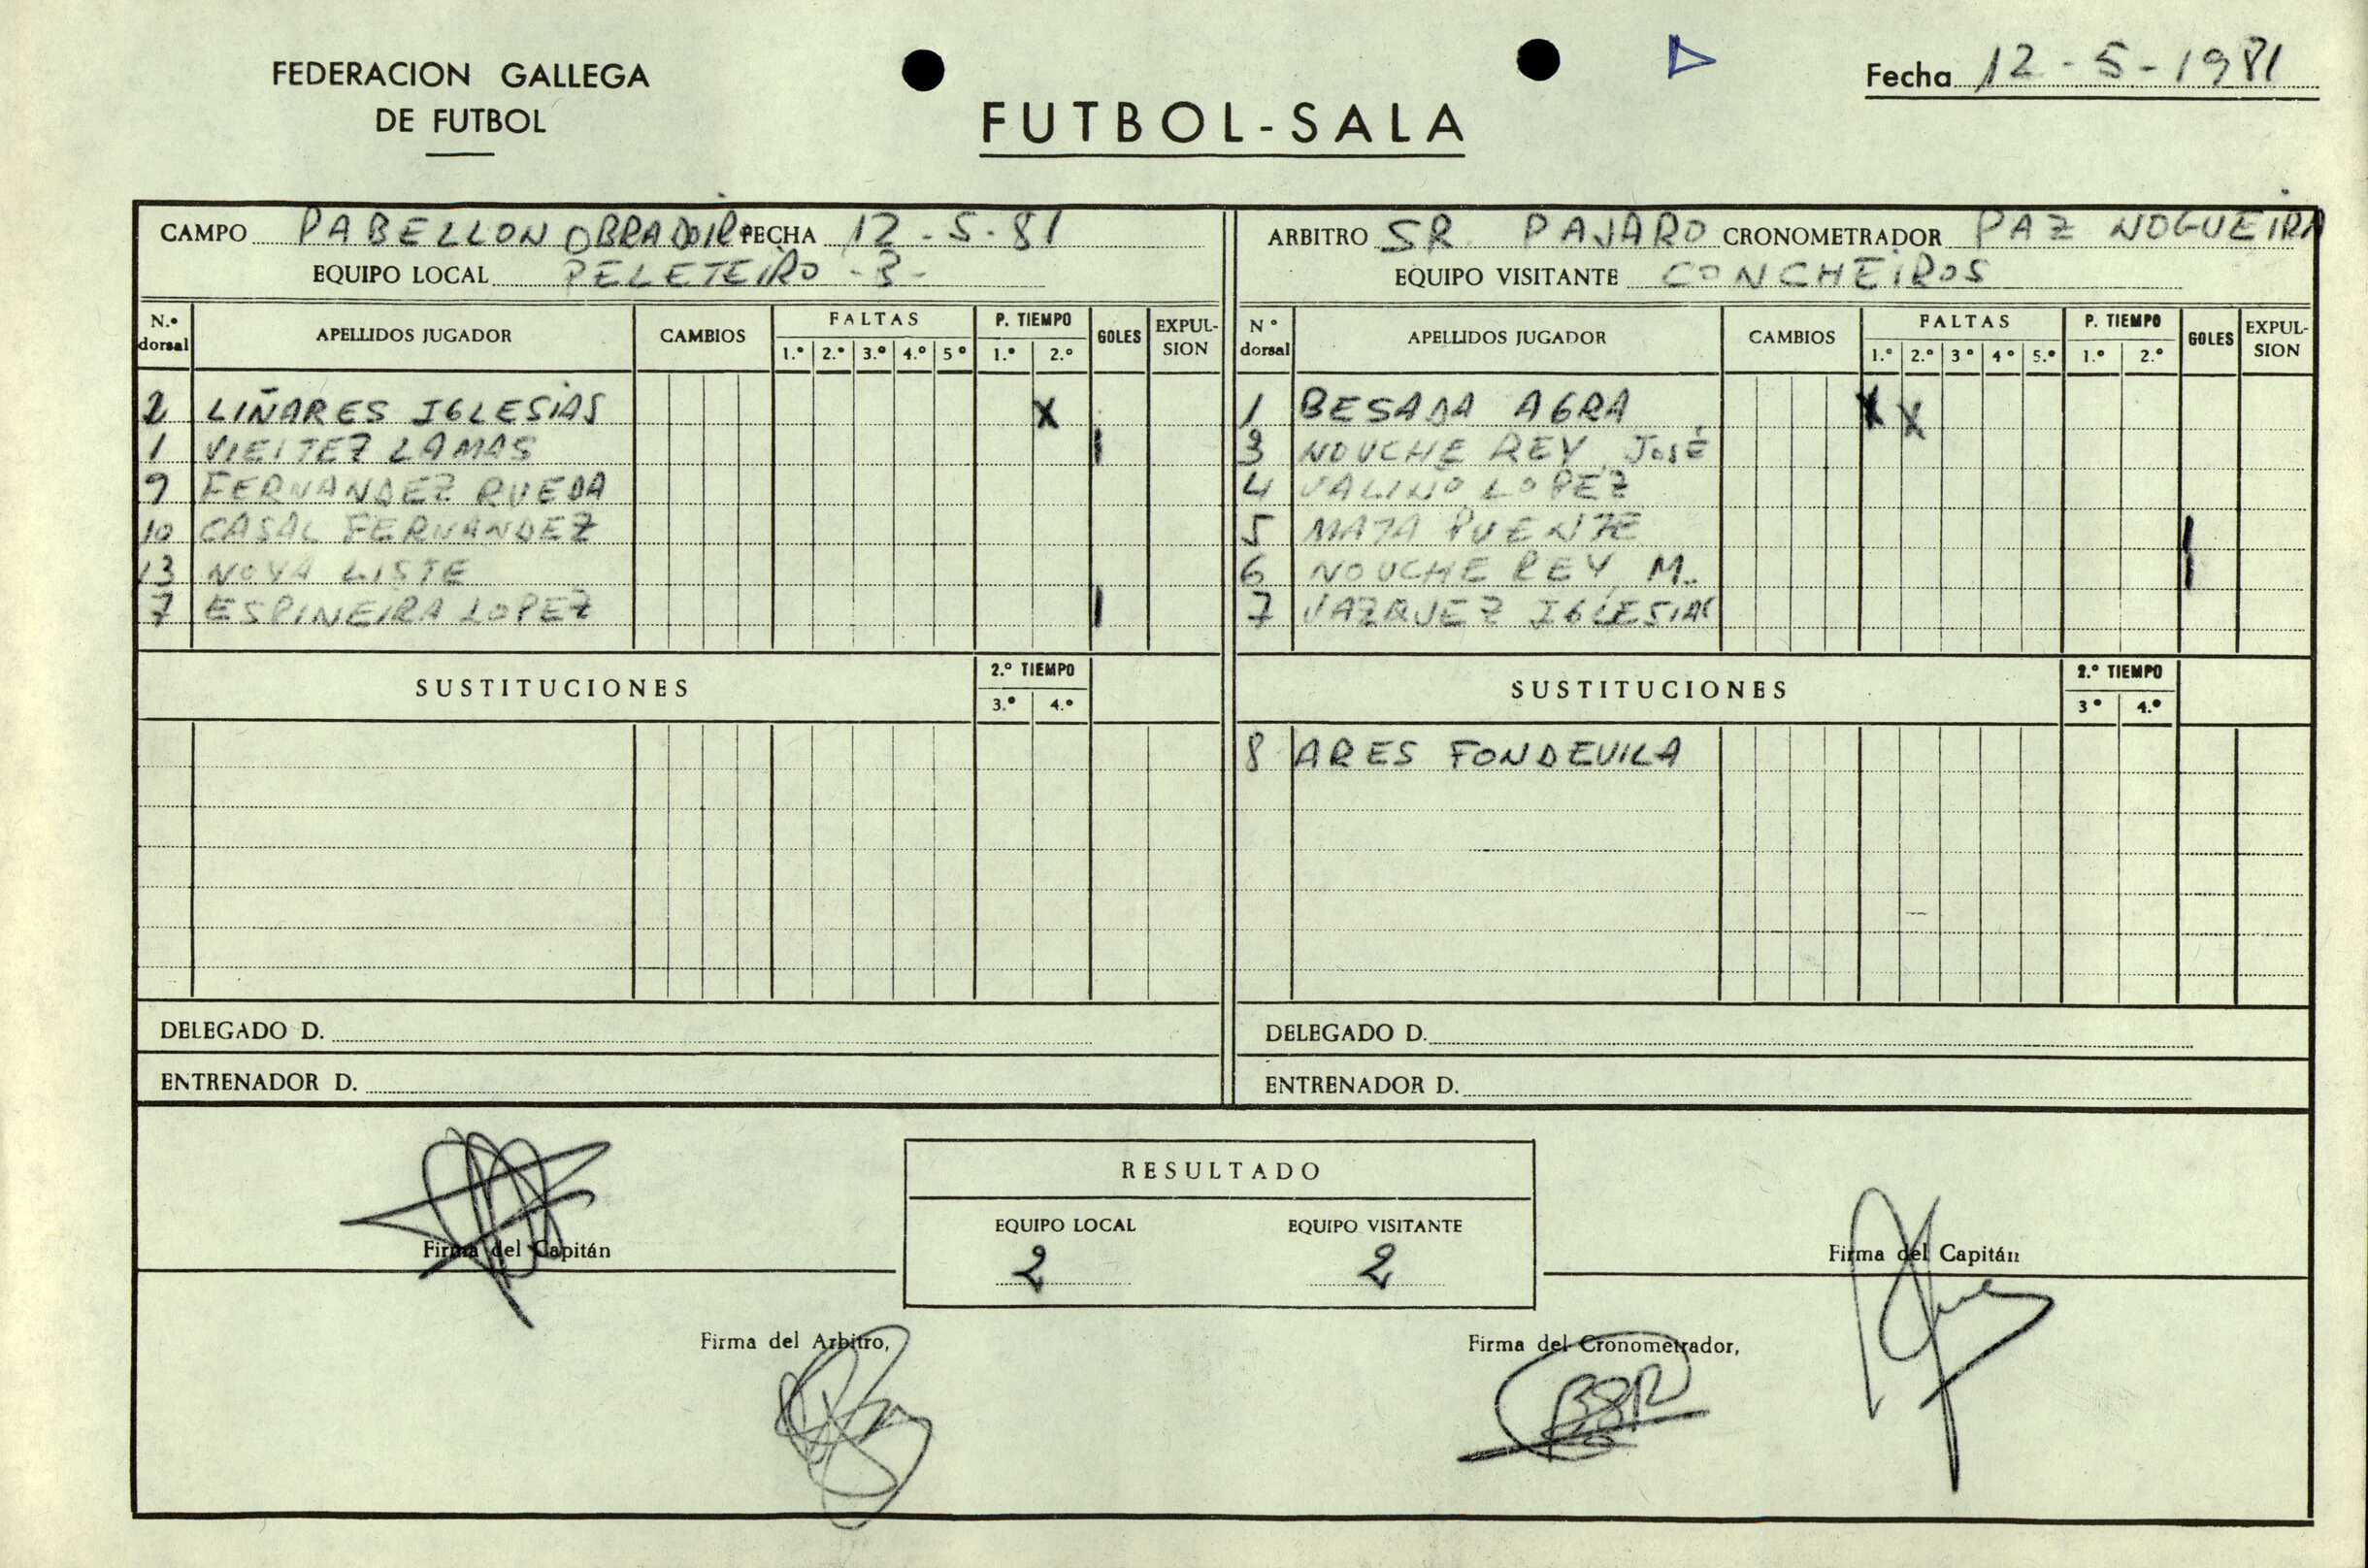 FEDERACION GALLEGA
DE FUTBOL
FUTBOL-SALA
Fecha 12-5-1981
CAMPO PABELLON OBRADOIRO FECHA 12-5-81
EQUIPO LOCAL PELETEIRO -B-
N.º dorsal APELLIDOS JUGADOR CAMBIOS FALTAS 1.º 2.º 3.º 4.º 5º P. TIEMPO 1.º 2.º GOLES EXPULSION
2 LIÑARES IGLESIAS X
1 VIEITEZ LAMAS I
9 FERNANDEZ RUEDA
10 CASAL FERNANDEZ
13 NOYA LISTE
7 ESPINEIRA LOPEZ I
SUSTITUCIONES 2.º TIEMPO 3.º 4.º
DELEGADO D.
ENTRENADOR D.
ARBITRO SR. PAJARO CRONOMETRADOR PAZ NOGUEIRA
EQUIPO VISITANTE CONCHEIROS
Nº dorsal APELLIDOS JUGADOR CAMBIOS FALTAS 1.º 2.º 3º 4º 5.º P. TIEMPO 1.º 2.º GOLES EXPULSION
1 BESADA AGRA X X
3 NOUCHE REY, José
4 VALIÑO LOPEZ
5 MATA PUENTE I
6 NOUCHE REY, M. I
7 VAZQUEZ IGLESIAS
SUSTITUCIONES 2.º TIEMPO 3º 4.º
8 ARES FONDEVILA
DELEGADO D.
ENTRENADOR D.
RESULTADO
EQUIPO LOCAL EQUIPO VISITANTE
2 2
Firma del Capitán
Firma del Capitán
Firma del Arbitro,
Firma del Cronometrador,